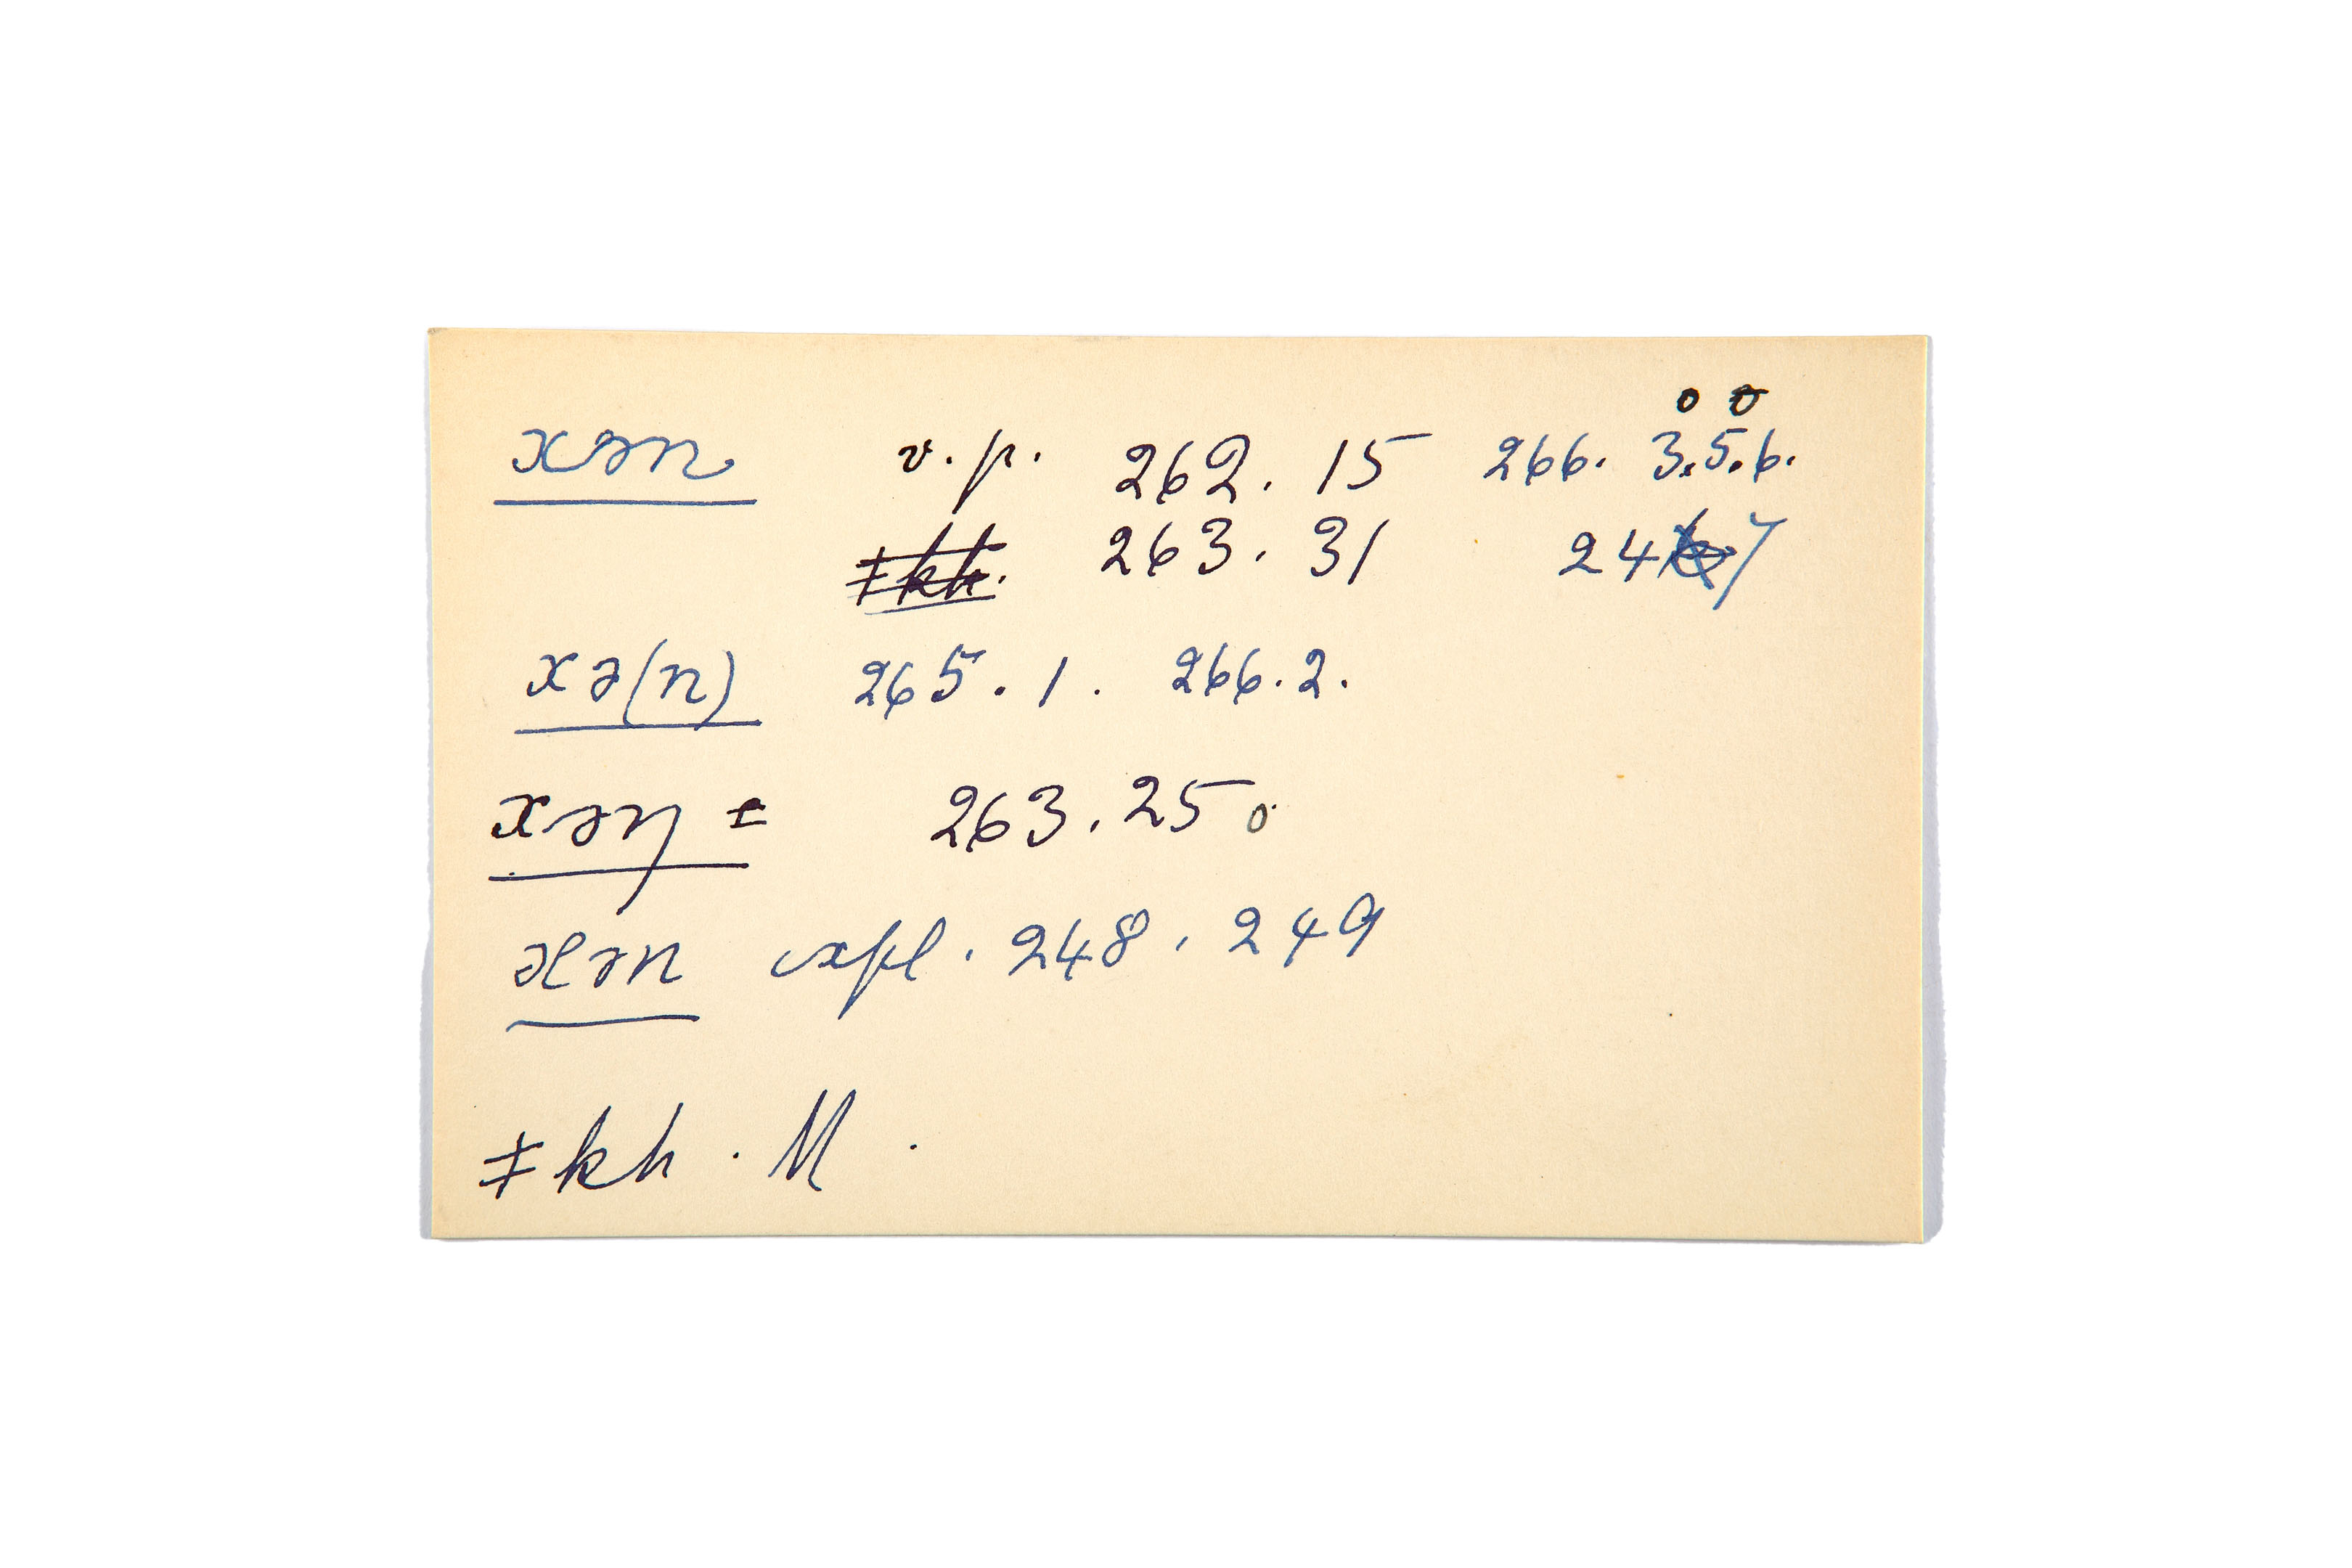 xǝn v.p. 262. 15 266. 3.5.6.
≠kh. 263. 31 247
xǝ(n) 265. 1. 266.2.
xǝŋ ± 263.25 o
xǝn expl. 248, 249
≠kh. M.